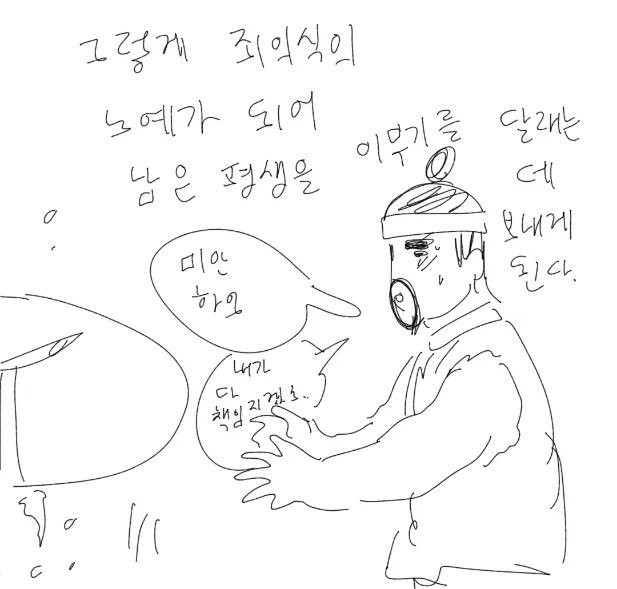 그렇게 죄의식의
노예가 되어
남은 평생을
이무기를
달래는
데
보내게
된다.
미안
하오
내가
다
책임지겠소..